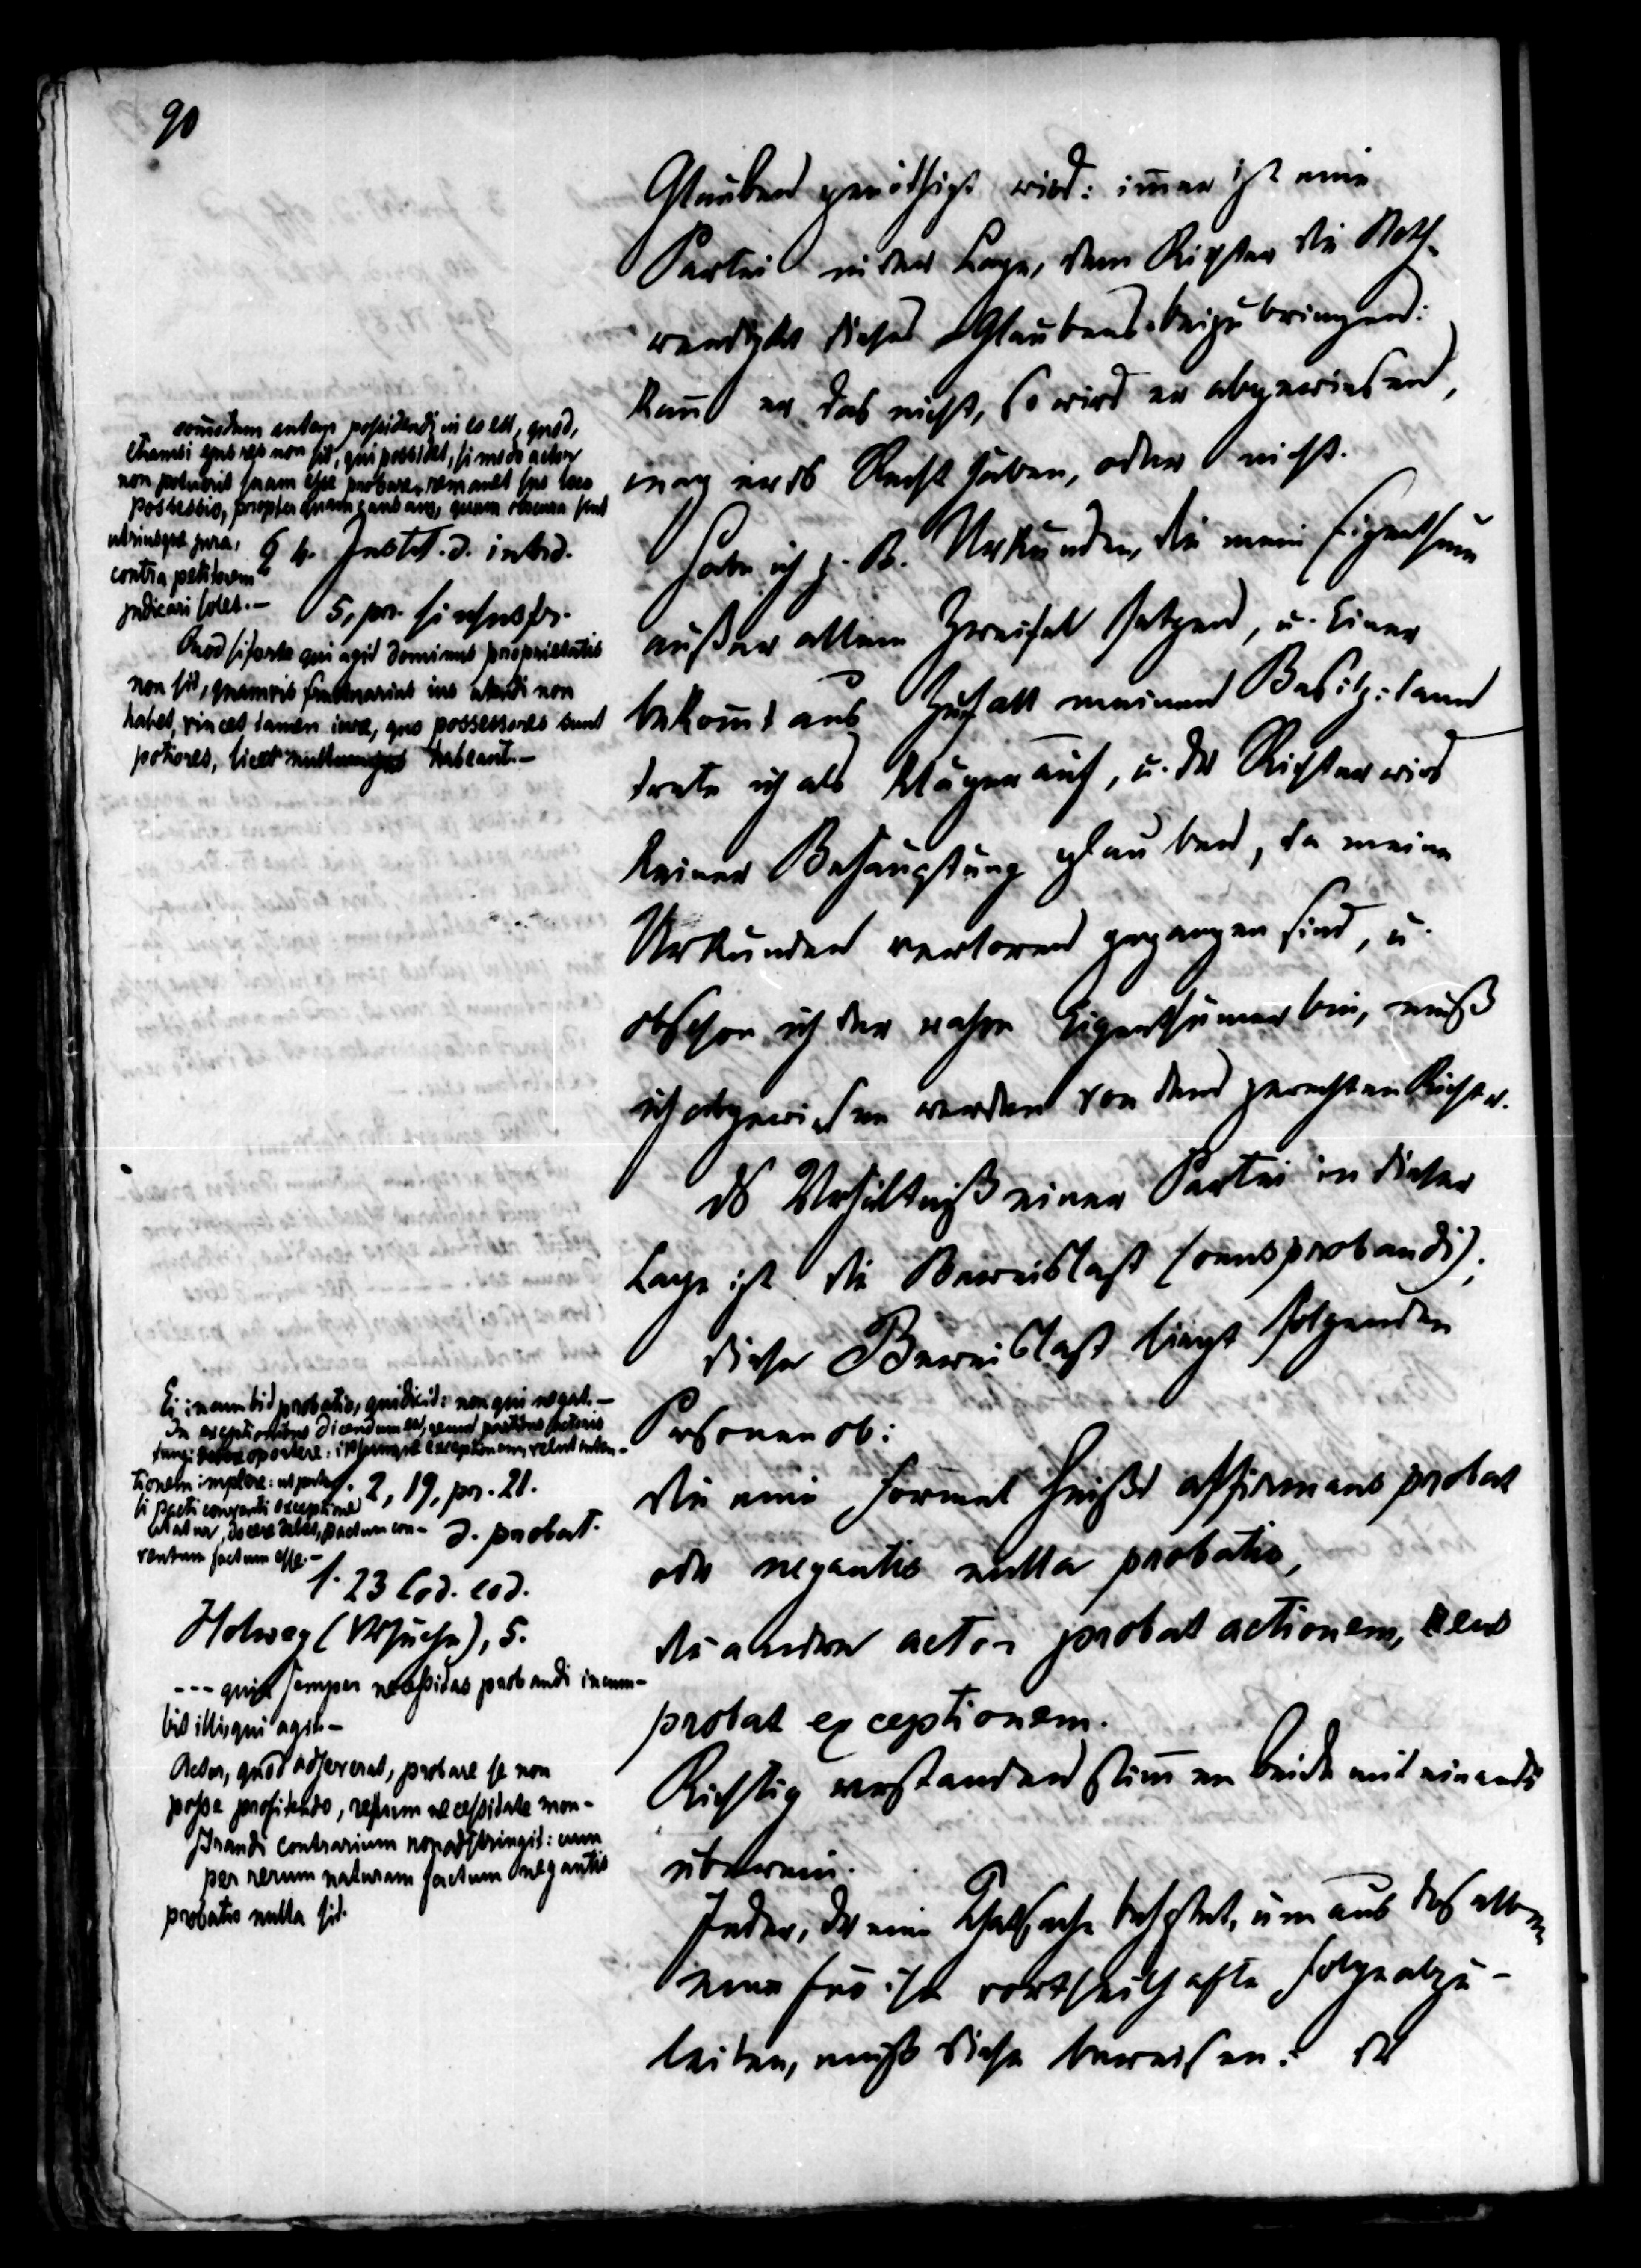 90
Glauben genöthigt wird: im̄er ist eine
Partei in der Lage, dem Richter die Noth-
wendigkt dieses Glaubens beizubringen:
kan̄ er das nicht, so wird er abgewiesen,
mag er ds Recht haben, oder nicht.
Habe ich z. B. Urkunden, die mein Eigenthum
außer allem Zweifel setzen, u. Einer
bekom̄t aus Zufall meinen Besitz: dann
trete ich als Kläger auf, u. der Richter wird
keiner Behauptung glauben, da meine
Urkunden verloren gegangen sind, u.
obschon ich der wahre Eigenthümer bin, muß
ich abgewiesen werden von dem gerechten Richter.
ds Verhältniß einer Partei in dieser
Lage ist die Beweislast (onus probandi);
diese Beweislast liegt folgenden
Personen ob:
die eine Formel heißt affirmans probat
oder negantis nulla probatio,
die andere actor probat actionem, reus
probat exceptionem.
Richtig verstanden stim̄en beide mit einander
überein.
Jeder, der eine Thatsache behptet, um aus derselben
eine für ihn vortheilhafte Folge abzu-
leiten, muß diese beweisen: der
com̄odum autem possidendi in eo est, quod,
etiamsi ejus res non sit, qui possidet, si modo actor
non potuerit suam esse probare, remanet suo loco
possessio, propter quam causam, quum obscura sint
utriusque jura,
contra petitorem
judicari solet.—
§ 4. Instit. d. interd.
5, pr. si ususfr.
Quod si forte qui agit dominus proprietatis
non sit, quamvis fructuarius ius utendi non
habet, vincet tamen iure, quo possessores sunt
potiores, licet nullum jus habeant.—
Ei incumbit probatio, qui dicit: non qui negat.—
In exceptionibus dicendum est, reum partibus actoris
fungi oportere: ipsumque exceptionem, velut inten-
tionem implere: ut puta
si pacti conventi exceptione
utatur, docere debet, pactum con-
ventum factum esse.—
l. 2, 19, pr. 21.
d. probat.
l. 23 Cod. eod.
Holweg (Versuche), 5.
--- quia semper necessitas probandi incum-
bit illi, qui agit.—
Actor, quod adseverat, probare se non
posse profitendo, reum necessitate mon-
strandi contrarium non adstringit: cum
per rerum naturam factum negantis
probatio nulla sit.